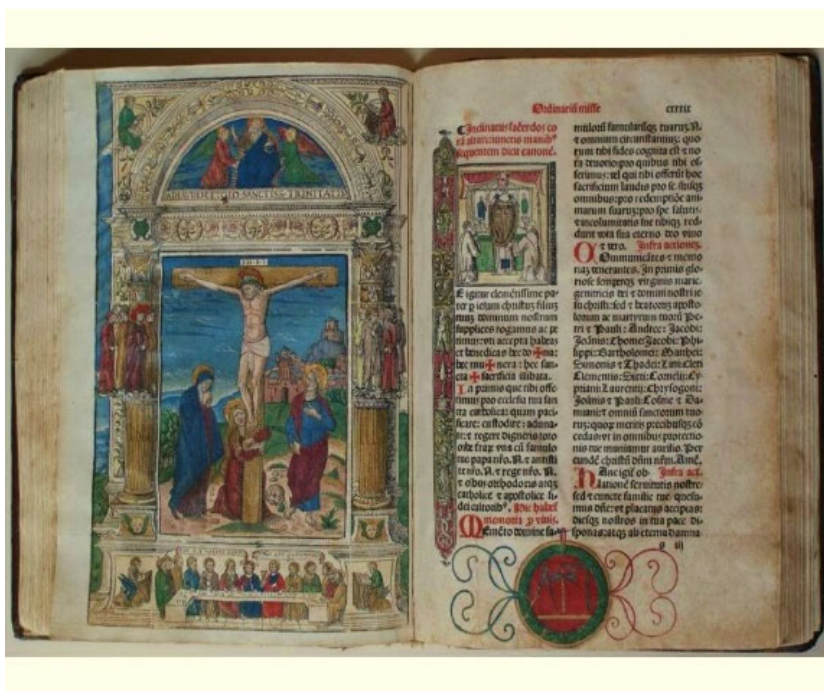 INRI
Ordinariũ misse
Inclinatus sacerdos co
sequentem dicit canonē.
E igitur clementissime pa
ter p iesum christuz filiuz
tuuz dominum nostrum
supplices rogamus ac pe
timus: vti accepta habeas
et benedicas hec do✠na:
hec mu✠nera: hec san
cta✠sacrificia illibata.
In primis que tibi offe
rimus pro ecclesia tua san
cta catholica: quam paci
ficare: custodire: aduna
re: et regere digneris toto
orbe
papa nr̃o. N. et antisti
te nr̃o. N. et rege nr̃o. N.
et oībus orthodoxis atqz
catholice et apostolice fi
dei cultoribꝰ. Hic habet
memoria
Memēto domine fa
mulorũ famularũqz tuaruz. N.
et omnium circunstantiuz: quo
rum tibi fides cognita est et no
ta deuotio: pro quibus tibi of
ferimus: vel qui tibi offerũt hoc
sacrificium laudis pro se. suisqz
omnibus: pro redemptiōe ani
marum suaruz: pro spe salutis.
et incolumitatis sue tibiqz red
dunt vota sua eterno deo viuo
et vero. Infra actionez.
Communicātes et memo
riaz venerantes. In primis glo
riose semperqz virginis marie.
genitricis dei et domini nostri ie
su christi: sed et beatoruz aposto
lorum ac martyrum tuorũ Pe
tri et Pauli: Andree: Jacobi:
Joānis: Thome: Jacobi: Phi
lippi: Bartholomei: Matthei:
Simonis et Thadei: Lini: Cleti
Clementis: Sixti: Cornelii: Cy
priani: Laurentii: Chrysogoni:
Joānis et Pauli: Cosme et Da
miani: et omniũ sanctorum tuo
ruz: quoꝝ meritis precibusqz cō
cedas: vt in omnibus protectio
nis tue muniamur auxilio. Per
eundē christũ dñm nr̃m. Amē.
Hanc igit̃ ob Infra act.
lationē seruitutis nostre:
sed et cuncte familie tue: quesu
mus dñe: vt placatus accipias:
diesqz nostros in tua pace di
sponas: atqz ab eterna damna